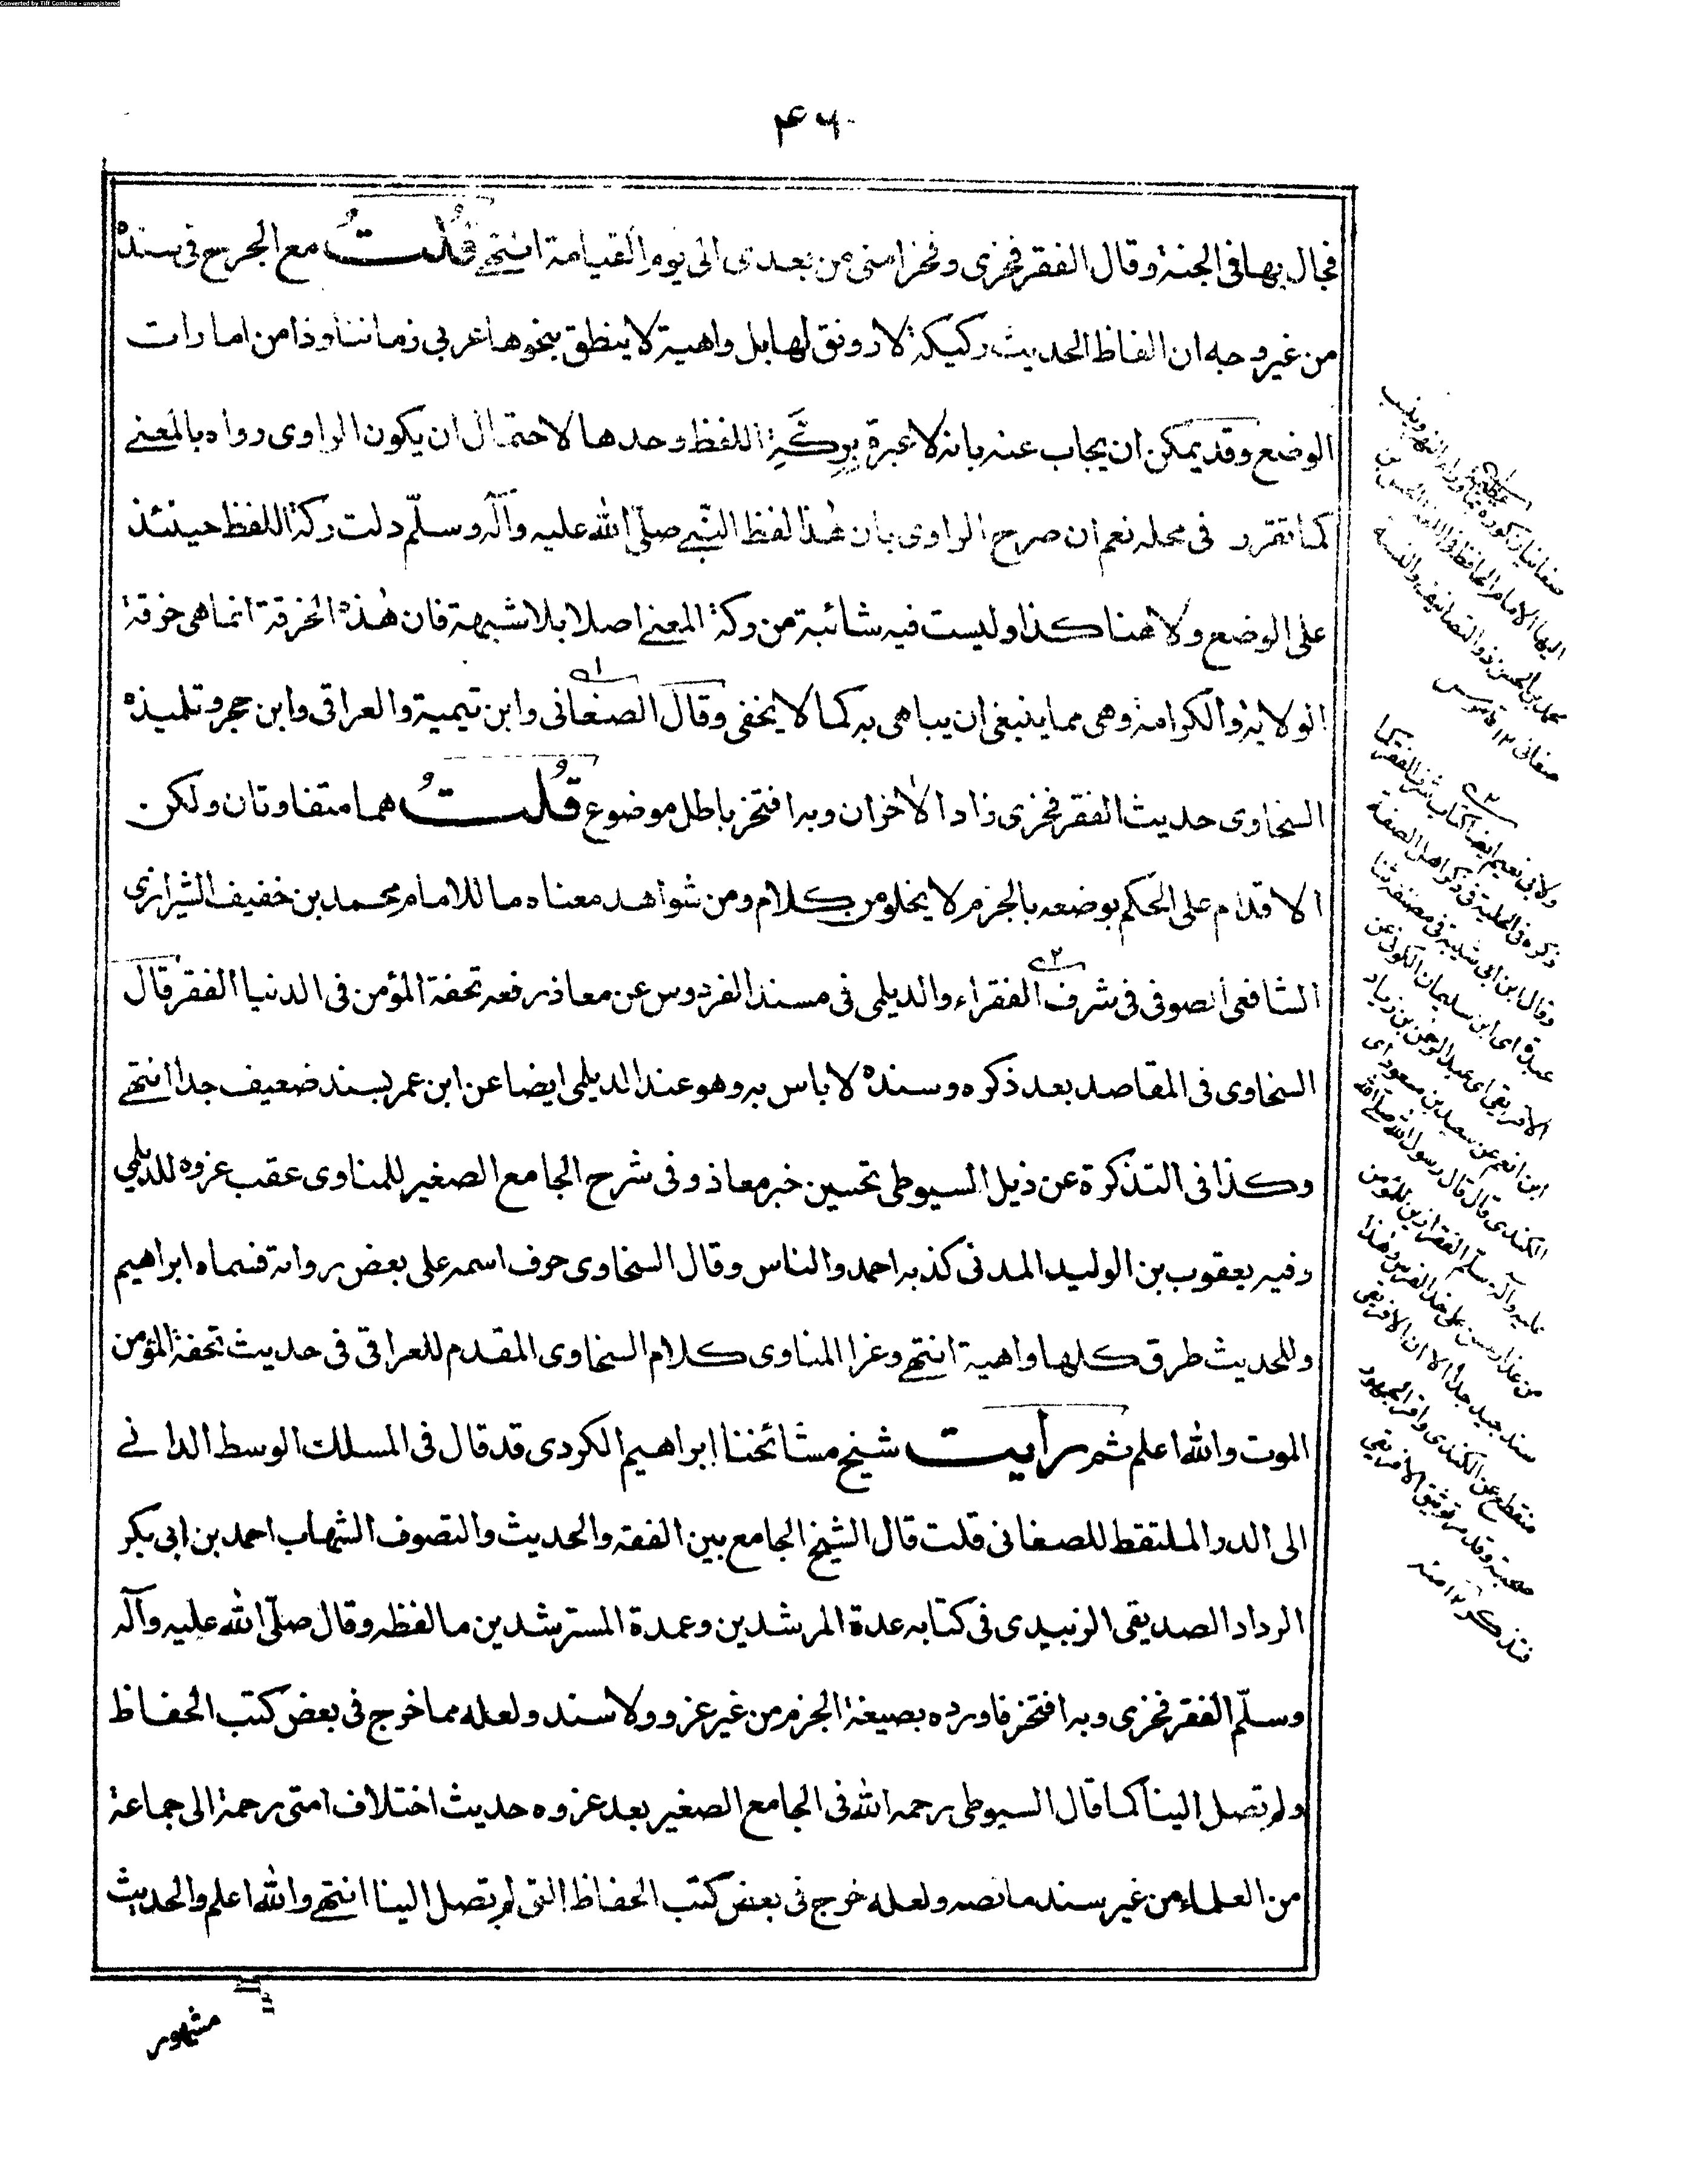 Converted by Tiff Combine - unregistered
۴۶
فجال بها فى الجنة وقال الفقر فخرى وفخر امتى من بعدى الى يوم القيامة انتهے قُلتُ مع الجرح فى سندہ
من غير وجه ان الفاظ الحديث ركيكة لا رونق لها بل واهية لا ينطق بنحوها عربى زماننا وذا من امارات
الوضع وقد يمكن ان يجاب عنه بانه لا عبرة بركّة اللفظ وحدها لاحتمال ان يكون الراوى رواه بالمعنے
كما تقرر فى محله نعم ان صرح الراوى بان هٰذا لفظ النّبے صلّى الله عليه وآله وسلّم دلت ركة اللفظ حينئذ
على الوضع ولا هنا كذا وليست فيه شائبة من ركة المعنے اصلا بلا شبهة فان هٰذہ الخرقة انما هى خرقة
الولاية والكرامة وهى مما ينبغى ان يباهى به كما لا يخفى وقال الصنعانى وابن تيمية والعراقى وابن حجر وتلميذه
السخاوى حديث الفقر فخرى زاد الاخران وبه افتخر باطل موضوع قُلتُ هما متفاوتان ولكن
الاقدام على الحكم بوضعه بالجزم لا يخلو من كلام ومن شواهد معناه ما للامام محمد بن خفيف الشيرازى
الشافعى الصوفى فى شرف الفقراء والديلمى فى مسند الفردوس عن معاذ رفعه تحفة المؤمن فى الدنيا الفقر قال
السخاوى فى المقاصد بعد ذكره وسندہ لا باس به وهو عند الديلمى ايضا عن ابن عمر بسند ضعيف جدا انتهے
وكذا فى التذكرة عن ذيل السيوطى تحسين خبر معاذ وفى شرح الجامع الصغير للمناوى عقب عزوه للديلمي
وفيه يعقوب بن الوليد المدنى كذبه احمد والناس وقال السخاوى حرف اسمه على بعض رواته فسماه ابراهيم
وللحديث طرق كلها واهية انتهے وعزا المناوى كلام السخاوى المقدم للعراقى فى حديث تحفة المؤمن
الموت والله اعلم ثم رأيت شيخ مشائخنا ابراهيم الكردى قد قال فى المسلك الوسط الدانے
الى الدر الملتقط للصغانى قلت قال الشيخ الجامع بين الفقه والحديث والتصوف الشهاب احمد بن ابى بكر
الرداد الصديقى الزبيدى فى كتابه عدة المرشدين وعمدة المسترشدين ما لفظه وقال صلّى الله عليه وآله
وسلّم الفقر فخرى وبه افتخر فاورده بصيغة الجزم من غير عزو ولا سند ولعله مما خرج فى بعض كتب الحفاظ
ولم تصل الينا كما قال السيوطى رحمه الله فى الجامع الصغير بعد عزوه حديث اختلاف امتى رحمة الى جماعة
من العلماء من غير سند ما نصه ولعله خرج فى بعض كتب الحفاظ التى لم تصل الينا انتهے والله اعلم والحديث
مشهور
صغانيان كورة عظيمة بما وراء النهر وينسب
اليها الامام الحافظ فى اللغة الحسن بن
محمد بن الحسن ذو التصانيف والنسبة
صغانى ١٢ قاموس
ولابى نعيم ايضا كتاب شرف الفقر كما
ذكره فى الحلية فى ذكر اهل الصفة
وقال ابن ابى شيبة فى مصنفه ثنا
عبدة اى ابن سليمان الكوفى عن
الافريقى اى عبد الرحمن بن زياد
ابن انعم عن سعيد بن مسعود اى
الكندى قال قال رسول الله صلى الله
عليه وآله وسلم الفقر ازين للمؤمن
من عذار حسن على خد الفرس وهذا
سند جيد جدا الا ان الافريقى
منقطع عن الكندى واقر الجمهور
صحبته وقد مر توثيق الافريقى
فتذكر ١٢ منه